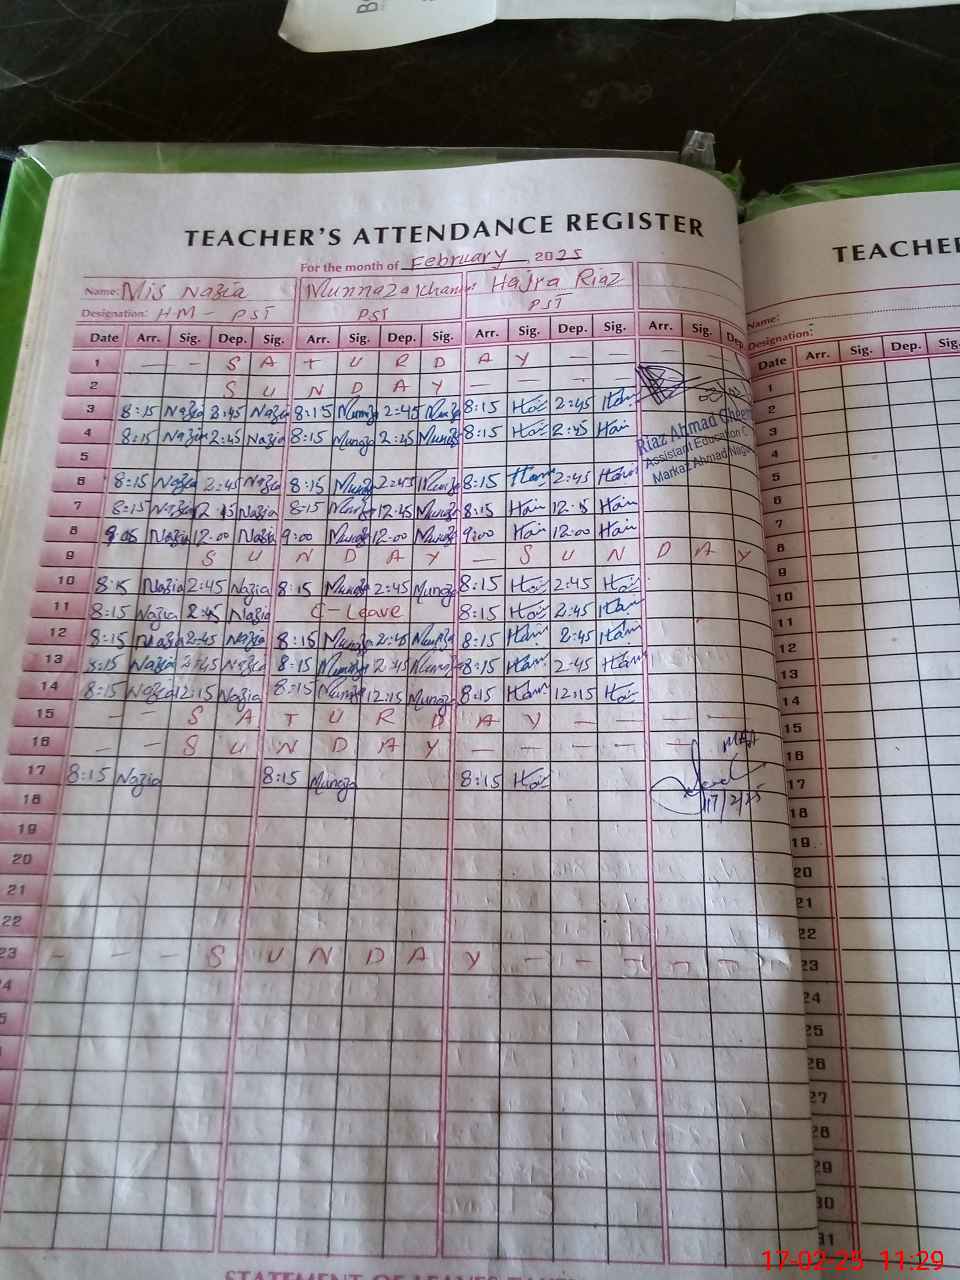 TEACHER'S ATTENDANCE REGISTER
For the month of February, 2025
Name: Mis Nazia Munnaza Khanum Hajra Riaz
Designation: HM - PST PST PST
Date Arr. Sig. Dep. Sig. Arr. Sig. Dep. Sig. Arr. Sig. Dep. Sig. Arr. Sig. Dep.
1 — - S A T U R D A Y — —
2 S U N D A Y — — — —
3 8:15 Nazia 2:45 Nazia 8:15 2:45 8:15 2:45
4 8:15 Nazia 2:45 Nazia 8:15 2:45 8:15 2:45
Riaz Ahmad Cheem
Assistant Education
Markaz Ahmad Nagar
5
6 8:15 Nazia 2:45 Nazia 8:15 2:45 8:15 2:45
7 8:15 Nazia Nazia 8:15 12:45 8:15
8 Nazia 12:00 Nazia 9:00 12:00 9:00 12:00
9 S U N D A Y — S U N D A Y
10 8:15 Nazia 2:45 Nazia 8:15 2:45 8:15 2:45
11 8:15 Nazia 2:45 Nazia C-Leave 8:15 2:45
12 8:15 Nazia 2:45 Nazia 8:15 2:45 8:15 2:45
13 8:15 Nazia 2:45 Nazia 8:15 2:45 8:15 2:45
14 8:15 Nazia 12:15 Nazia 8:15 12:15 8:15 12:15
15 - — S A T U R D A Y - — — —
16 — - S U N D A Y — — — — —
17 8:15 Nazia 8:15 8:15
17/2/25
18
19
20
21
22
23 - — — S U N D A Y - - - - -
STATEMENT OF LEAVES
TEACHER
Name:
Designation:
Date Arr. Sig. Dep. Sig.
1
2
3
4
5
6
7
8
9
10
11
12
13
14
15
16
17
18
19
20
21
22
23
24
25
26
27
28
29
30
31
17-02-25 11:29